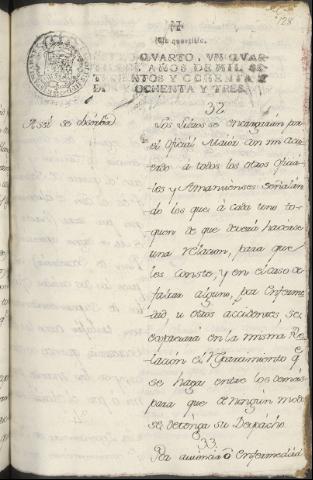 128
Un quartillo.
QVARTO, VN QVAR-
TILLO, AÑOS DE MIL SE-
TECIENTOS Y OCHENTA Y
DOS Y OCHENTA Y TRES.
32
Assi se observa
Los Libros se encargarán por
el Oficial Maior con mi acu-
erdo à todos los otros oficia-
les y Amanuenses señalan-
do los que à cada uno to-
quen de que deverá hacerse
una relacion, para que
les conste, y en el caso de
faltar alguno, por Enferme-
dad, u otros accidentes, se
expresará en la misma Re-
lación el Repartimiento q.e
se haga entre los demás
para que de ningun modo
se detenga su Despacho.
33
Por ausencia ô enfermedad